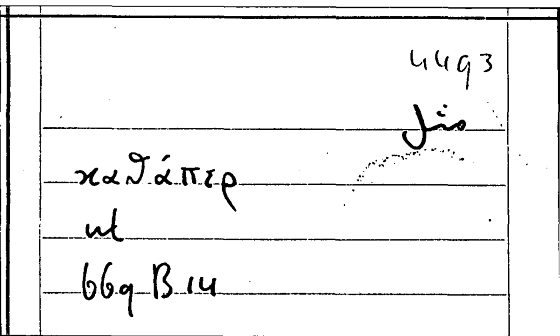 4493
مثل
καθάπερ
ut
669 B 14